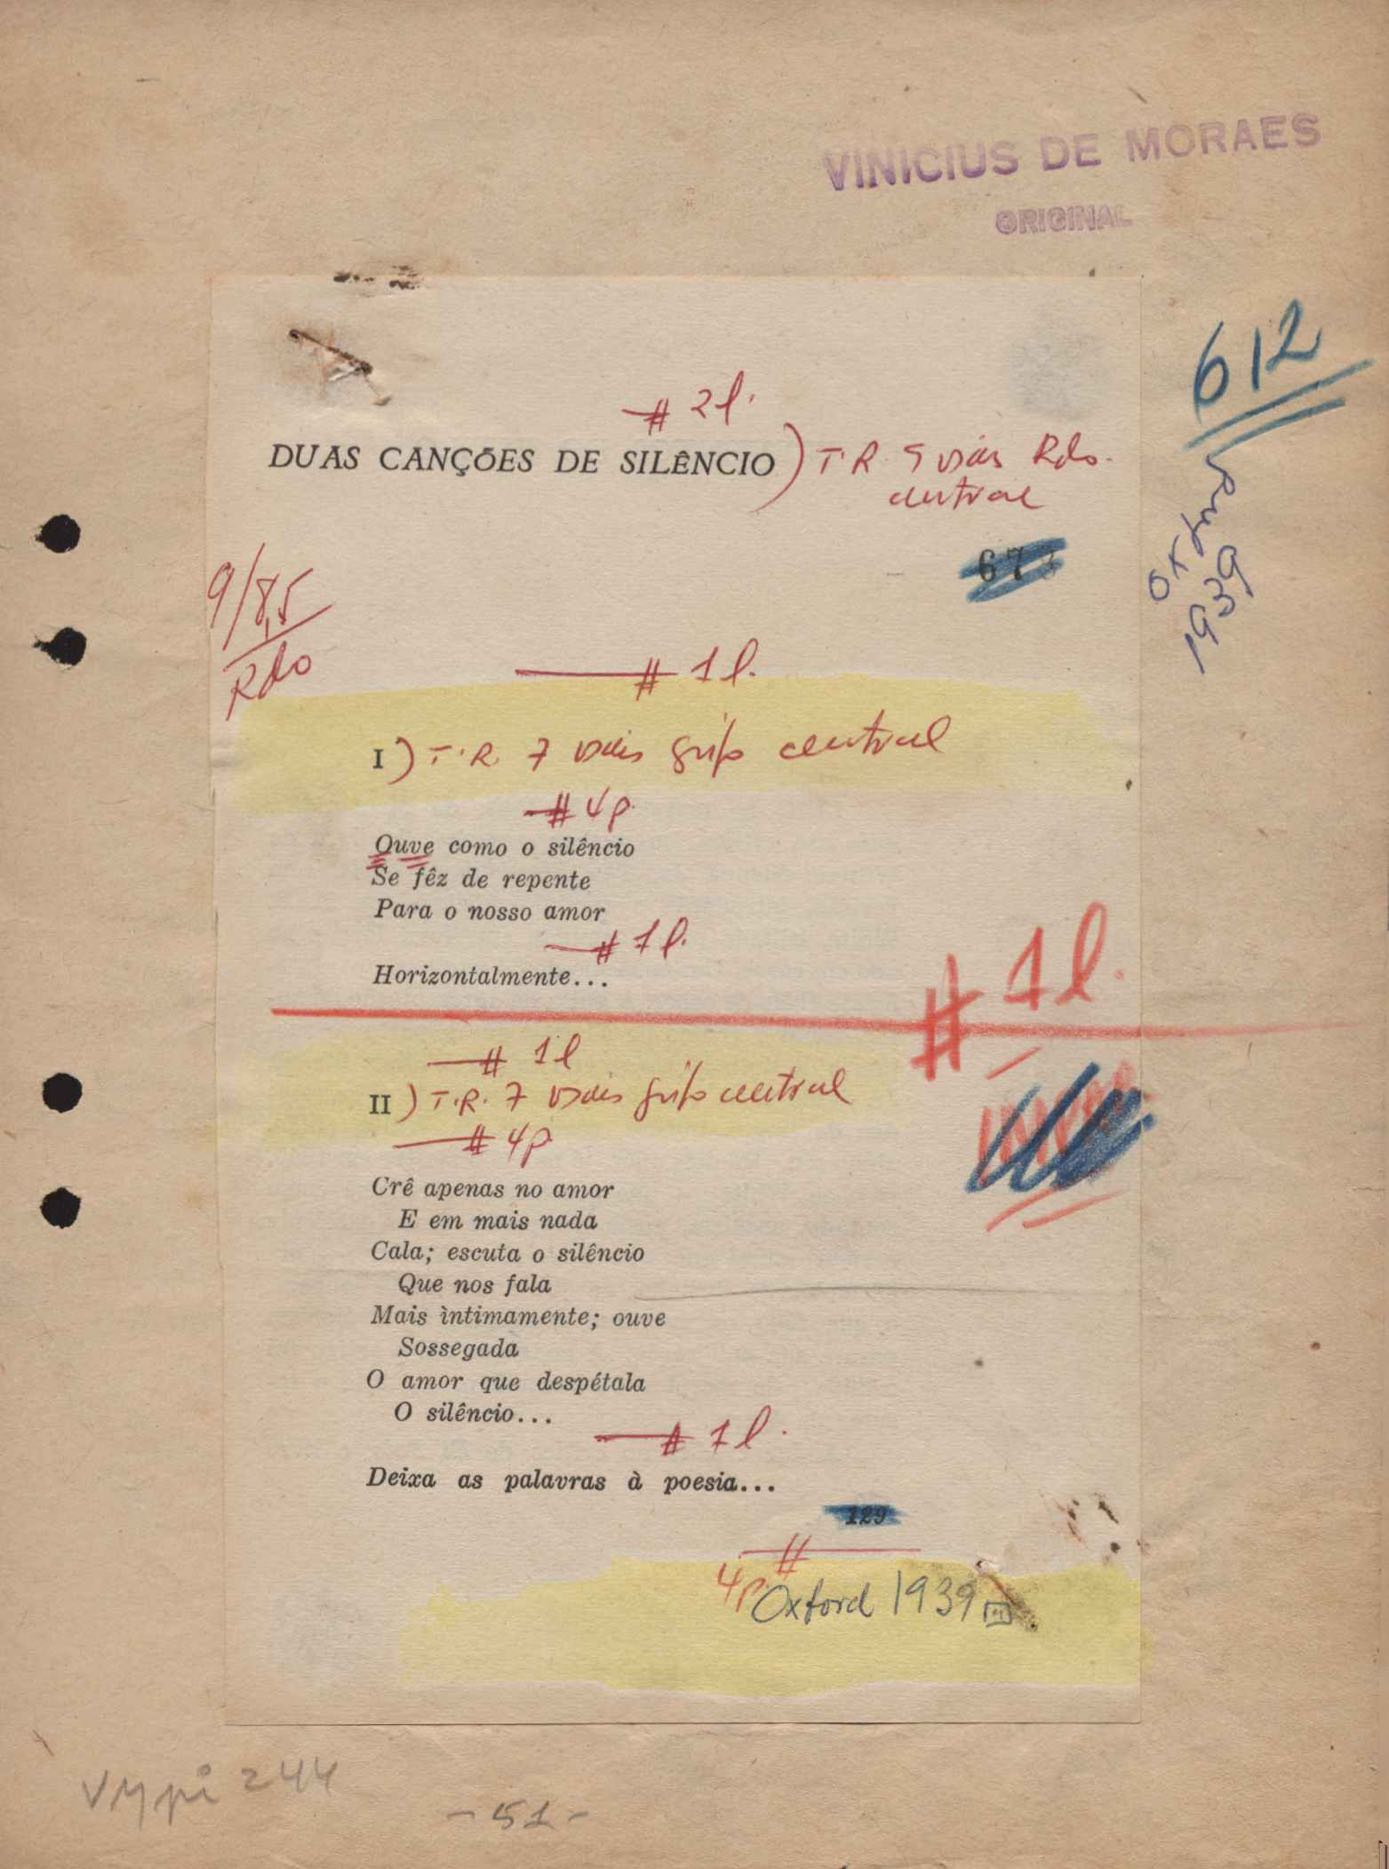 VINICIUS DE MORAES
ORIGINAL
612
# 2 l.
DUAS CANÇÕES DE SILÊNCIO) T.R. Rdo.
central
Oxford
1939
67
9/8,5
Rdo
# 1 l.
I) T.R. 7 grifo central
# 4 p.
Ouve como o silêncio
Se fêz de repente
Para o nosso amor
# 1 l.
Horizontalmente...
# 1 l.
# 1 l
II) T.R. 7 grifo central
# 4 p
Crê apenas no amor
E em mais nada
Cala; escuta o silêncio
Que nos fala
Mais ìntimamente; ouve
Sossegada
O amor que despétala
O silêncio...
# 1 l.
Deixa as palavras à poesia...
129
#
4 p. Oxford 1939
Vmpi 244
- 51 -